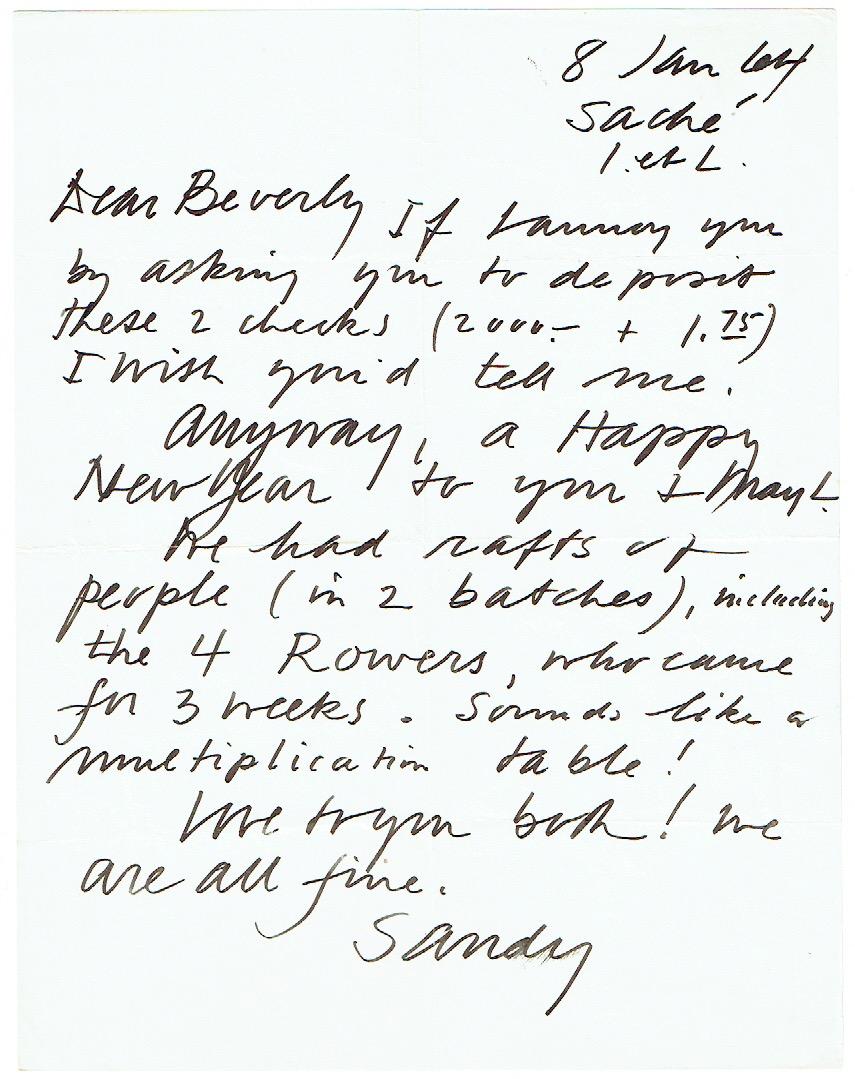 8 Jan 64
Saché
I. et L.
Dear Beverly If I annoy you
by asking you to deposit
these 2 checks (2000.– + 1.75)
I wish you'd tell me.
Anyway, a Happy
New Year to you & May L.
We had rafts of
people (in 2 batches), including
the 4 Rowers, who came
for 3 weeks. Sounds like a
multiplication table!
Love to you both! We
are all fine.
Sandy